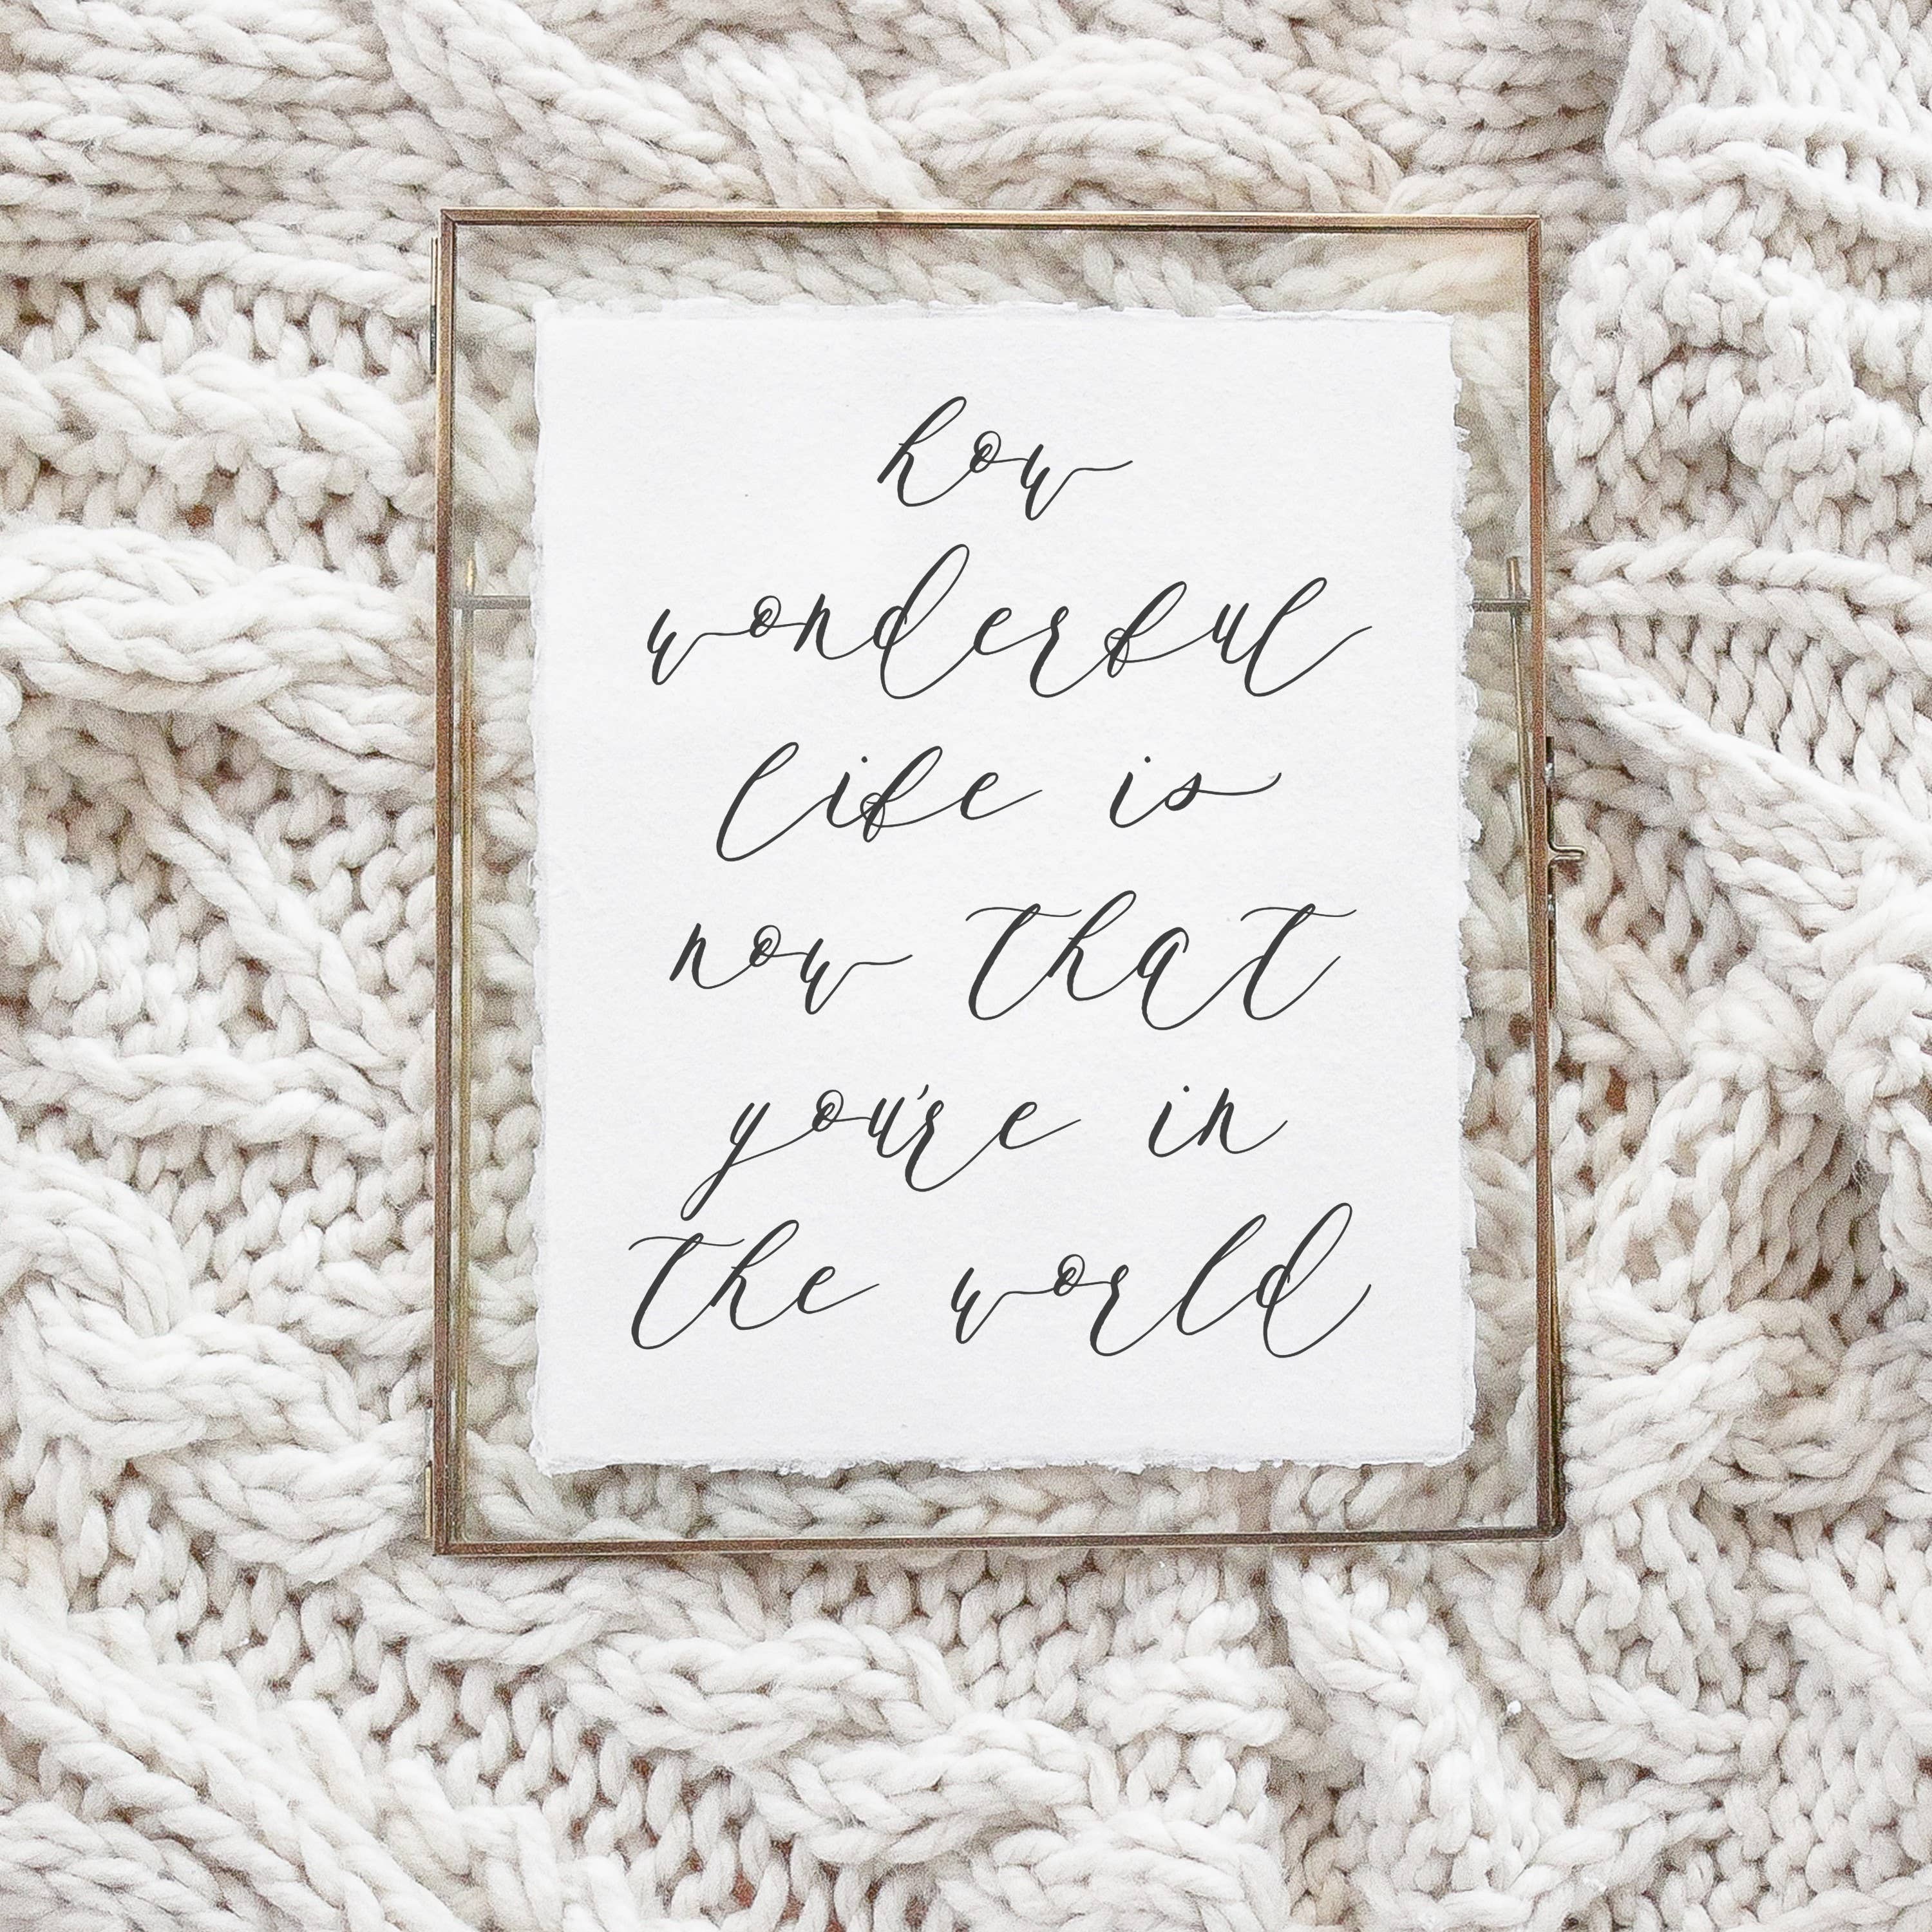 how
wonderful
life is
now that
you're in
the world